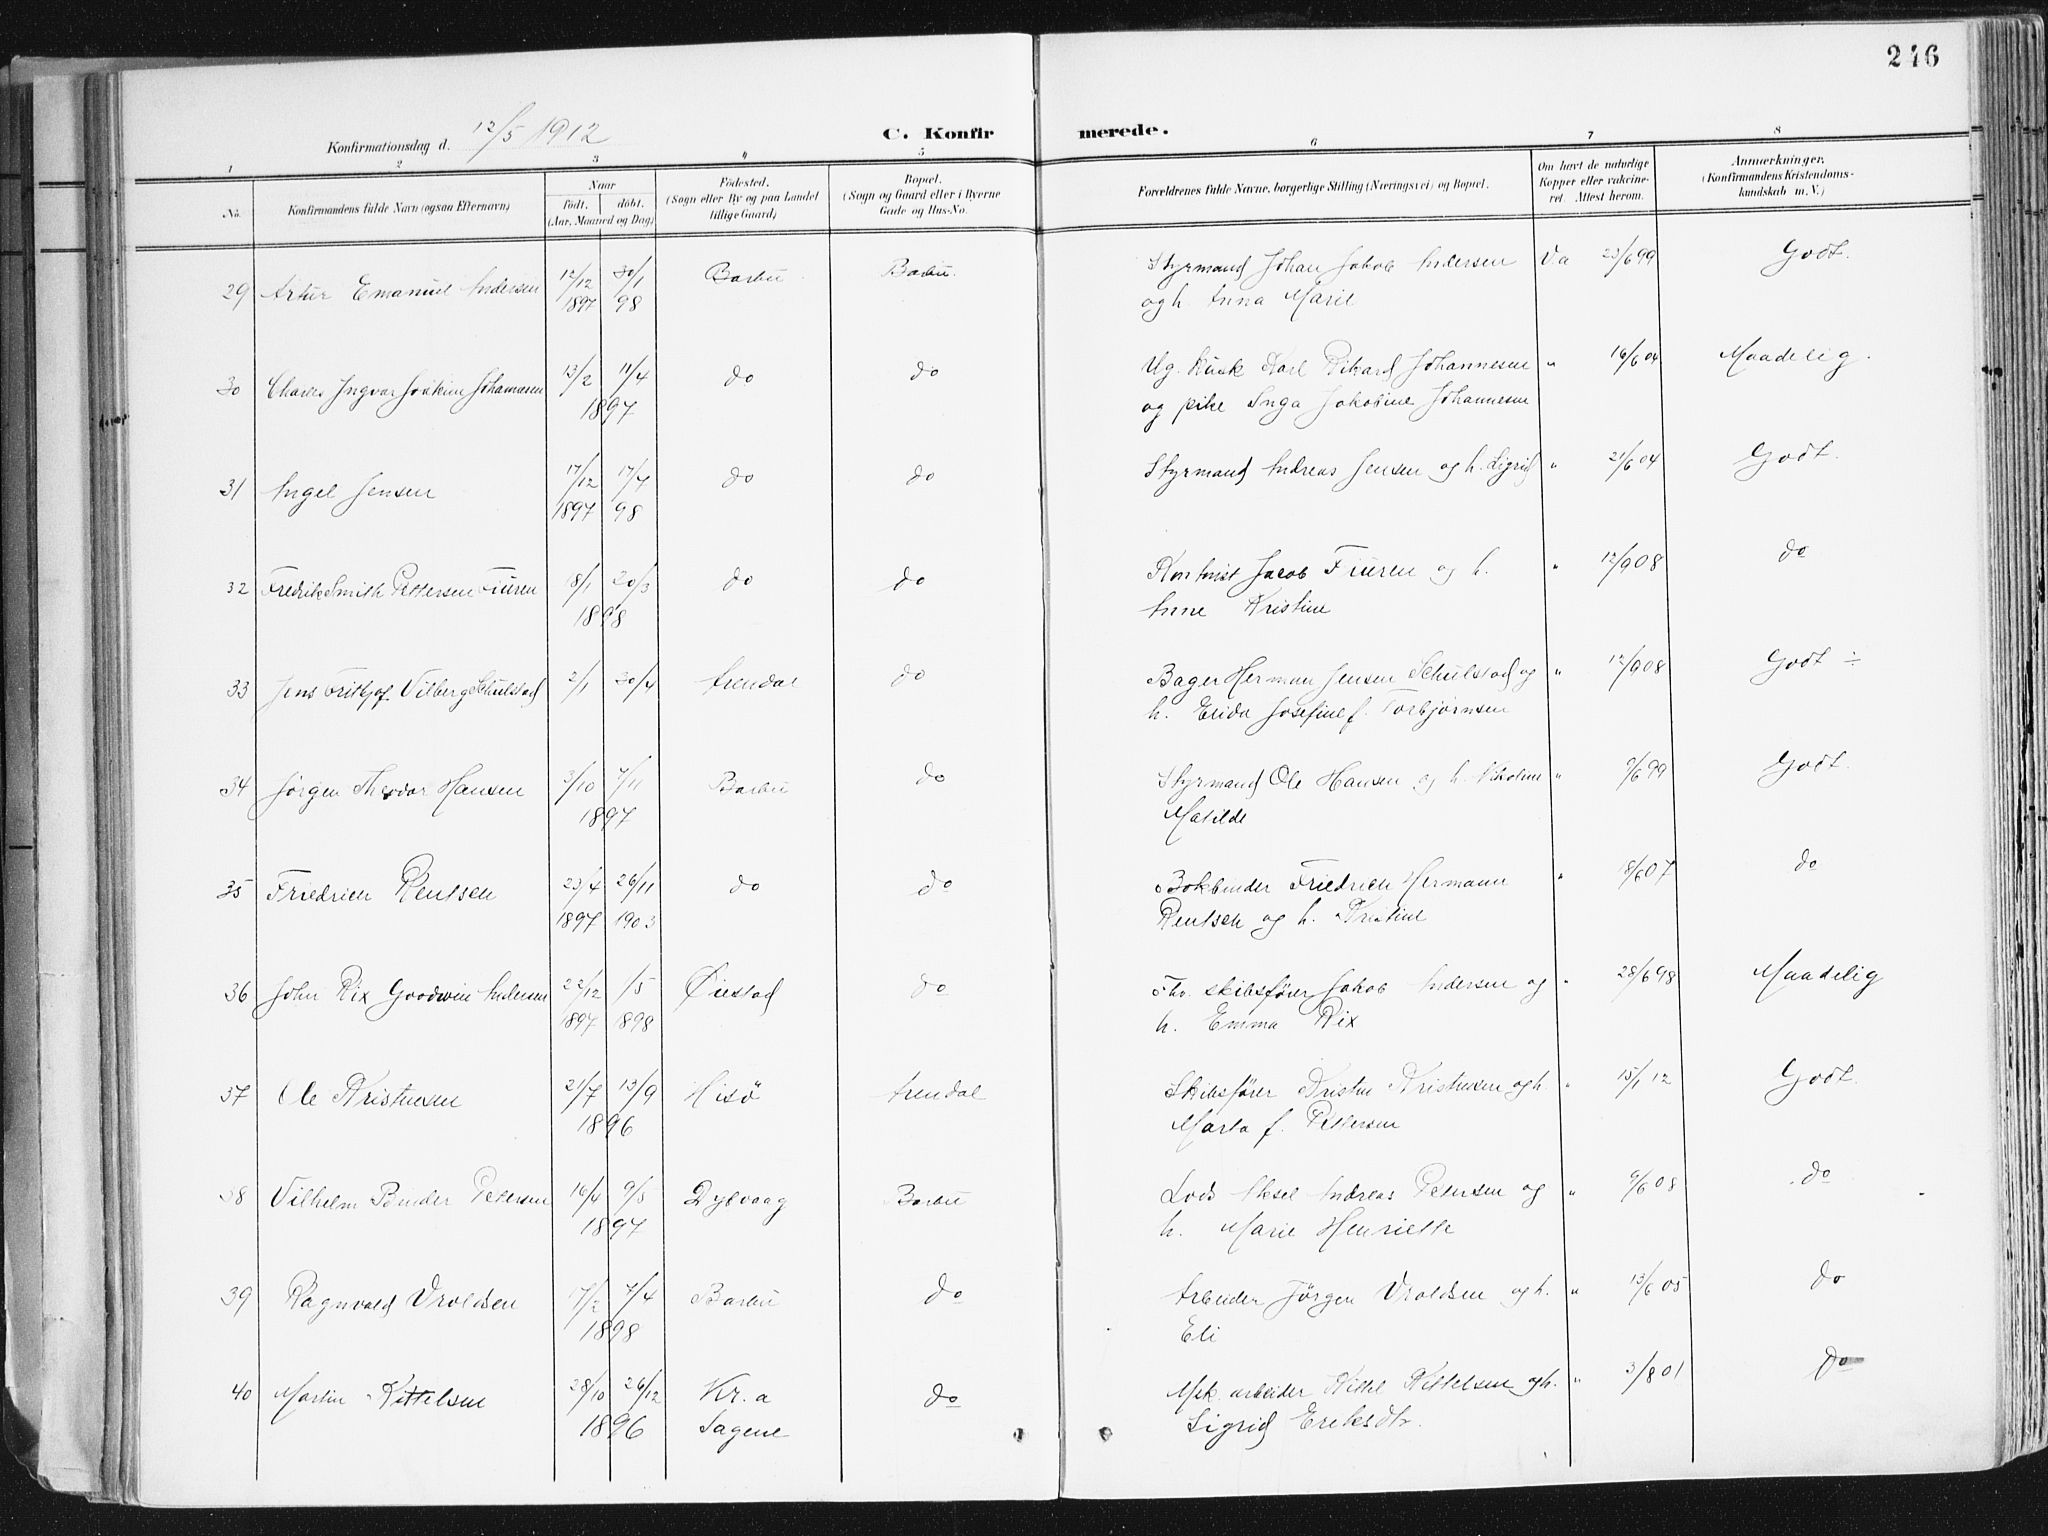 246
Konfirmationsdag d. 12/5 1912
C. Konfirmerede.
1 2 3 4 5 6 7 8
No. Konfirmandens fulde Navn (ogsaa Efternavn) Naar født. døbt. (Aar, Maaned og Dag) Fødested. (Sogn eller By og paa Landet tillige Gaard) Bopæl. (Sogn og Gaard eller i Byerne Gade og Hus-No. Forældrenes fulde Navne, borgerlige Stilling (Næringsvei) og Bopæl. Om havt de naturlige Kopper eller vakcineret. Attest herom. Anmærkninger. (Konfirmandens Kristendomskundskab m. V.)
29 Artur Emanuel Andersen 12/12 1897 30/1 98 Barbu Barbu. Styrmand Johan Jakob Andersen Va 23/6 99 Godt.
og h. Anna Marie
30 Charles Ingvar Joakim Johannesen 13/2 11/4 do do Ug. Kusk Karl Rikard Johannesen " 16/6 04 Maadelig.
1897 og pike Inga Jakobine Johannesen
31 Angel Jensen 17/12 1897 17/4 98 do do Styrmand Andreas Jensen og h. Sigrid " 21/6 04 Godt.
32 Fredrik Smith Pettersen Fiuren 8/1 20/3 do do Kontorist Jacob Fiuren og h. " 12/9 08 do
1898 Anne Kristine
33 Jens Fritjof Vilberg Schulstad 2/1 30/4 Arendal do Bager Herman Jensen Schulstad og " 12/9 08 Godt ÷
h. Elida Josefine f. Torbjørnsen
34 Jørgen Theodor Hansen 3/10 7/11 Barbu do Styrmand Ole Hansen og h. Nikoline " 9/6 99 Godt.
1897 Matilde
35 Friedrich Rentsch 23/4 1897 26/11 1903 do do Bokbinder Friedrich Hermann " 18/6 07 do
Rentsch og h. Kristine
36 John Rix Goodwin Andersen 22/12 1897 1/5 1898 Øiestad do Fhv. skibsfører Jakob Andersen og " 28/6 98 Maadelig
h. Emma Rix
37 Ole Kristensen 21/7 13/9 Hisö Arendal Skibsfører Kristen Kristensen og h. " 15/1 12 Godt.
1896 Marta f. Pettersen
38 Vilhelm Binder Petersen 16/4 9/5 Dybvaag Barbu Lods Aksel Andreas Petersen og " 9/6 08 do
1897 h. Marie Henriette
39 Ragnvald Vroldsen 17/2 7/4 Barbu do Arbeider Jörgen Vroldsen og h. " 13/6 05 do
1898 Eli
40 Martin Kittelsen 28/10 26/12 Kr.a do Mek. arbeider Kittel Kittelsen og h. " 3/8 01 do
1896 Sagene Sigrid Eriksdtr.